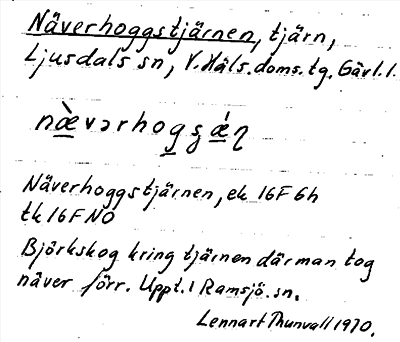 Näverhoggstjärnen, tjärn,
Ljusdals sn, V. Häls. doms. tg. Gävl. l.
næ̀vərhogʂǽɳ
Näverhoggstjärnen, ek 16F6h
tk 16F NO
Björkskog kring tjärnen där man tog
näver förr. Uppt. i Ramsjö sn.
Lennart Thunvall 1970.